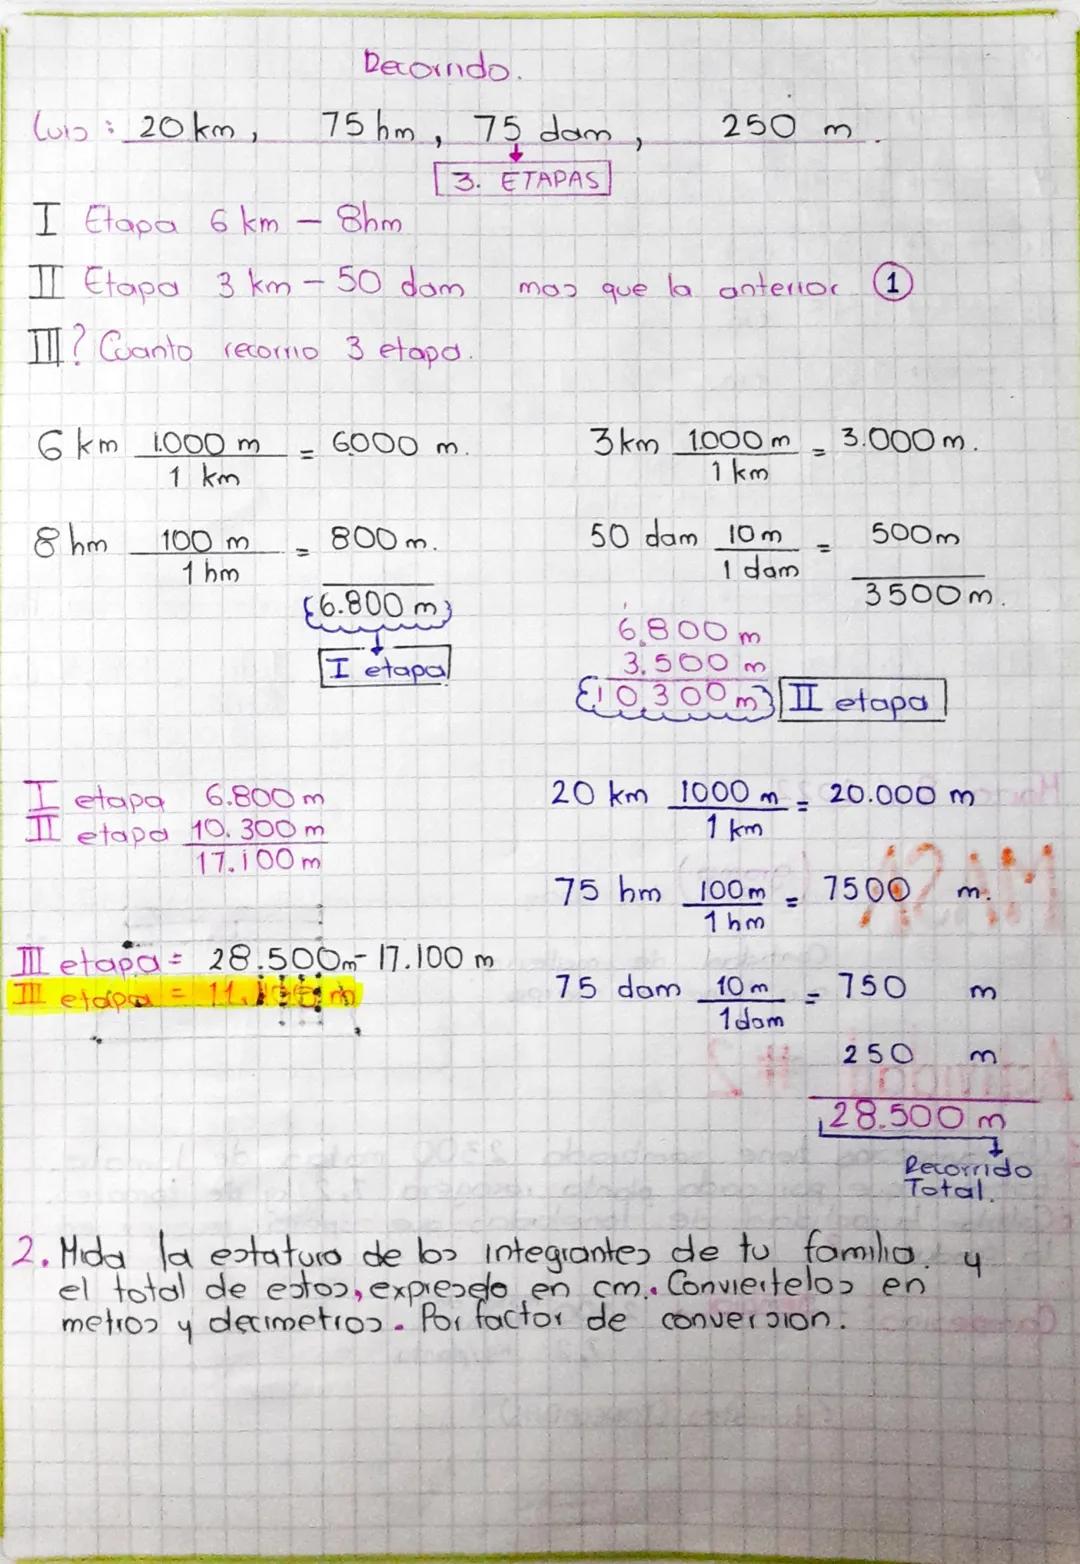 Recorrido.
Luis: 20 km, 75 hm, 75 dam, 250 m.
3. ETAPAS
I Etapa 6 km - 8hm
II Etapa 3 km - 50 dam mas que la anterior 1
III? Cuanto recorrio 3 etapa.
6 km 1.000 m / 1 km = 6000 m.
8 hm 100 m / 1 hm = 800 m.
6.800 m
I etapa
3km 1000 m / 1 km = 3.000 m.
50 dam 10 m / 1 dam = 500m
3500 m.
6.800 m
3.500 m
10.300 m II etapa
I etapa 6.800 m
II etapa 10.300 m
17.100 m
III etapa = 28.500m - 17.100 m
III etapa = 11. m
20 km 1000 m / 1 km = 20.000 m
75 hm 100m / 1 hm = 7500 m.
75 dam 10 m / 1dam = 750 m
250 m
28.500 m
Recorrido
Total.
2. Mida la estatura de los integrantes de tu familia. y
el total de estos, expresdo en cm. Conviertelos en
metros y decimetros. Por factor de conversion.